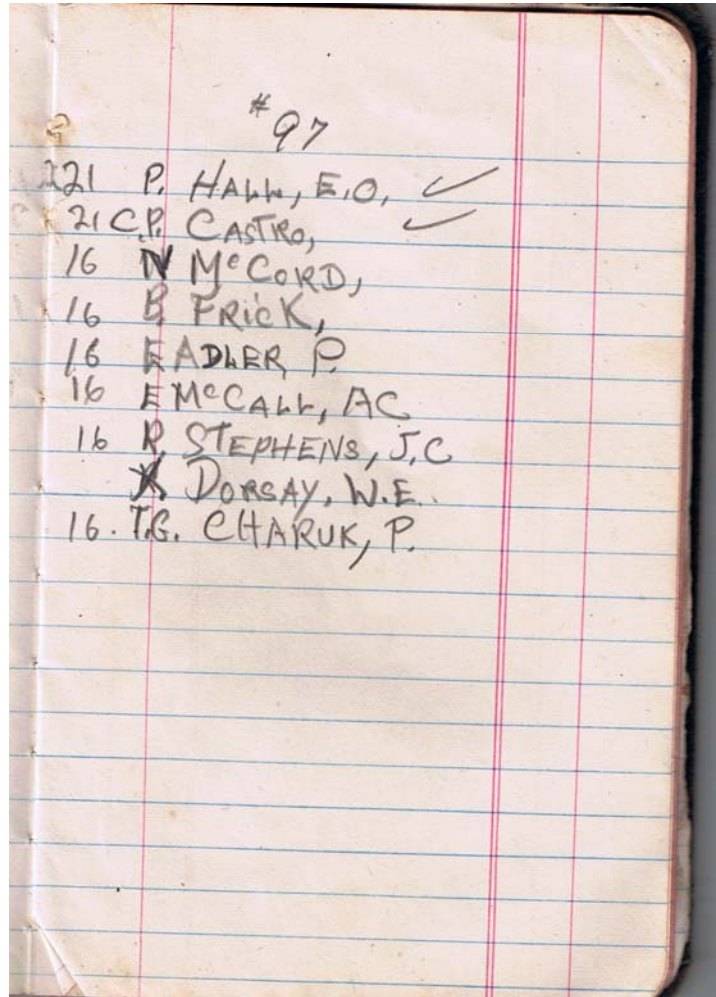 # 97
21 P. HALL, E.O, ✓
21 C.P. CASTRO, ✓
16 N McCORD,
16 B FRICK,
16 E ADLER P.
16 E McCALL, AC
16 R STEPHENS, J.C
DORSAY, W.E.
16. T.G. CHARUK, P.